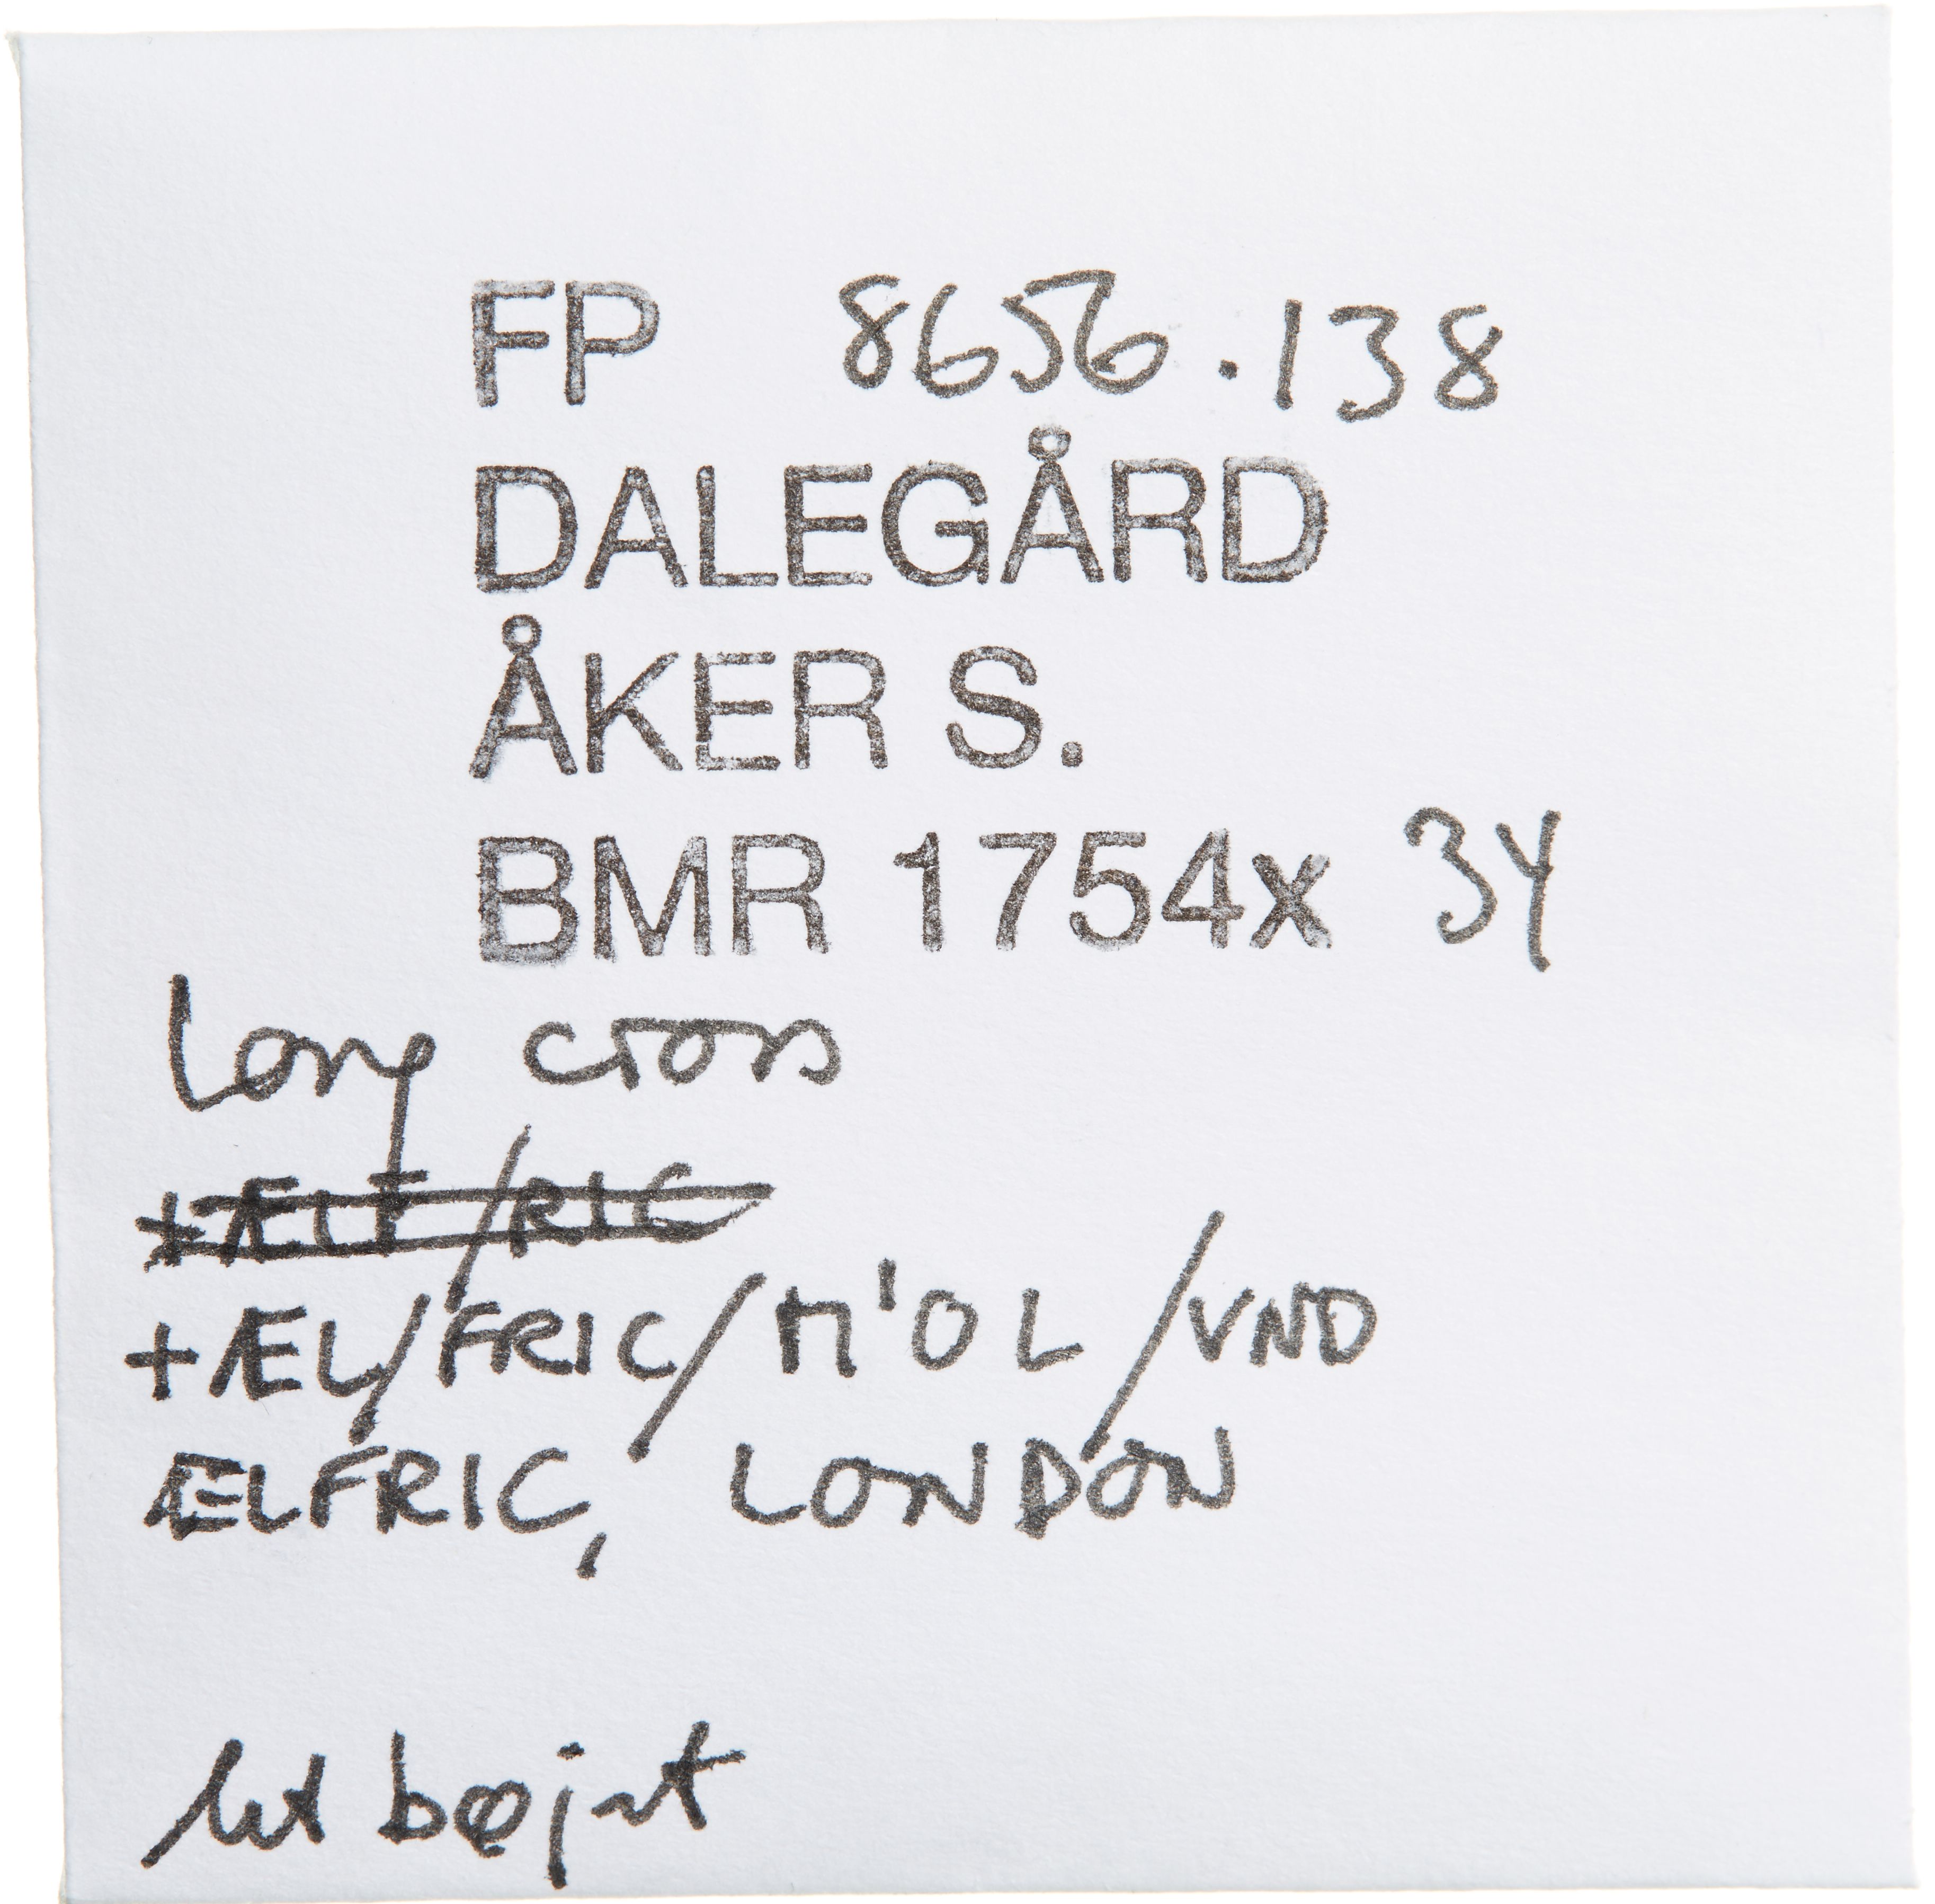 FP 8656.138
DALEGÅRD
ÅKER S.
BMR 1754x 34
Long cross
+ÆLF/RIC
+ÆL/FRIC/M'OL/VND
ÆLFRIC, LONDON
let bøjet